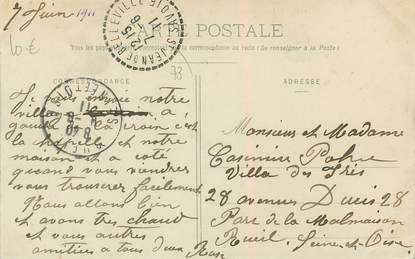 7 Juin 1911
10 €
CARTE POSTALE
Tous les pays étrangers n'acceptent pas la correspondance au recto (Se renseigner à la Poste)
73
CORRESPONDANCE
ADRESSE
Je envoie notre
village a
gauche la croix c'est
la chapelle et notre
maison et a coté
quand vous viendrez
vous trouverez facilement
Nous allons bien
et avons tres chaud
et vous autres
amitiés a tous deux
Monsieur et Madame
Casimir
Villa des Iris
28 avenue 28
Parc de la Malmaison
Rueil, Seine-et-Oise